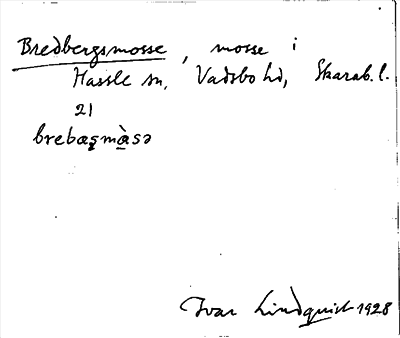 Bredbergsmosse, mosse i
Hassle sn, Vadsbo hd, Skarab. l.
21
brebæȿmɑ̀sə
Ivar Lindquist 1928